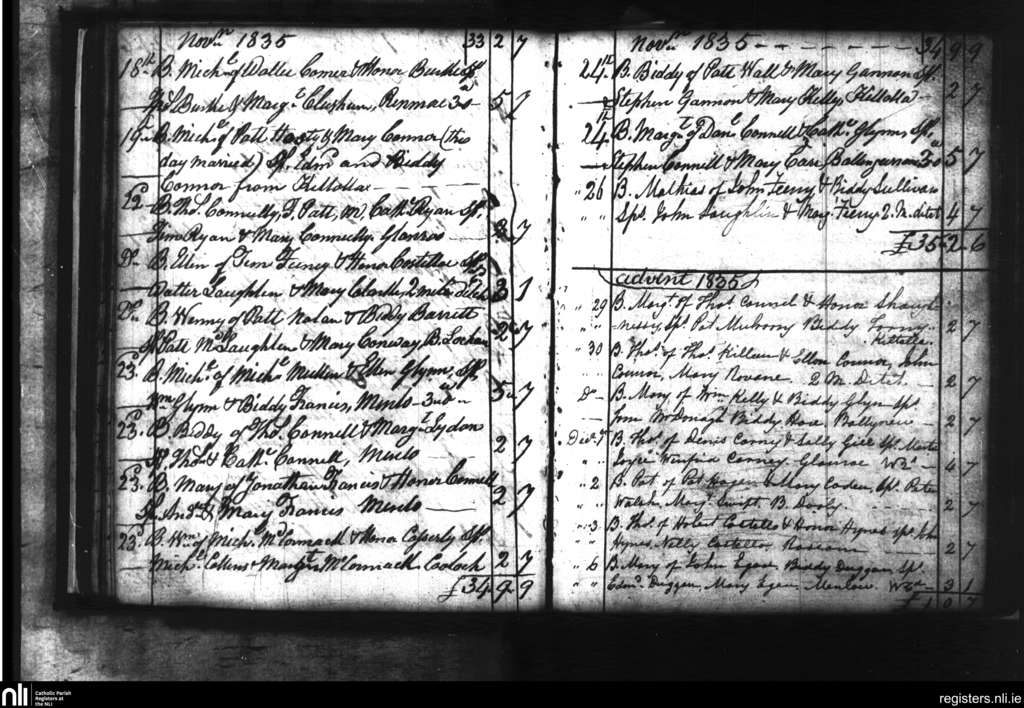 Novr 1835 33 2 7
18th B. Michl of Dattee Comer & Honor Burke Sp.
Burke & Margt Clusham, Renmore 3s 5 7
19 B. Michl of Patt Hasty & Mary Connor (this
day married) Sp. Edmd and Biddy
Connor from Killolla
22 B. Thos. Connelly, F. Patt, M. Cathe Ryan Sp.
Tim Ryan & Mary Connelly. Glanroe 2 7
Do B. Ellen of Tim Feeney & Honor Costelloe Sp.
Dattee Laughlin & Mary 2 3 1
Do B. Wenny of Patt Nolan & Biddy Barrett
Sp Patt McLaughlin & Mary Conway, B. 2 7
23. B. Michl of Michl Mullin & Ellen Glynn, Sp.
Wm Glynn & Biddy Francis, Menlo 3rd 5 7
23. B Biddy of Thos. Connell & Margt Lydon
Sp. Thos. & Cathe Connell, Menlo 2 7
23. B. Mary of Jonathan Francis & Honor Connell
Sp Andw & Mary Francis Menlo 2 7
23 B. Wm of Michl McCormack & Honor Casserly Sp.
Michl Collins & Margt McCormack Coolock 2 7
£34 9 9
Novr 1835 34 9 9
24th B. Biddy of Patt Wall & Mary Gannon Sp.
Stephen Gannon & Mary Kelly, Killolla 2 7
24 B. Margt of Danl Connell & Cathe Glynn Sp.
Stephen Connell & Mary Carr 5 7
" 26 B. Mathias of John Feeny & Biddy Sullivan
" " Sps. John Loughlin & Marg. Feeny 2. M. ditct 4 7
£35 2 6
Advent 1835
" 29 B. Margt of Thos Connel & Honor Shaugh
" " nessy, Sp. Pat Mulrony Biddy 2 7
Killolla.
" 30 B. Thos. of Thos. Killeen & Ellen Connor, John
" " Connor, Mary 2 M. Ditct. 2 7
Do B. Mary of Wm Kelly & Biddy Glyn Sp.
John McDonagh Biddy 2 7
B. Thos. of Denis Carny & Sally Gill Sp.
" " Joyce Winifrid Carney. Glanroe 4 7
" 2 B. Pat of Pat Hogan & Mary Sp. Peter
" " Walsh, Margt Swift. B. Dooly. 2 7
" 3 B. Thos. of Hobert Costello & Honor Hynes Sp. John
" " Hynes Nelly Costello, Roscam 2 7
" 6 B. Mary of John Egan Biddy Duggan Sp.
" " Edmd. Duggan, Mary Egan. Menlow. 3 1
£1 0 7
nli
Catholic Parish
Registers at
the NLI
registers.nli.ie